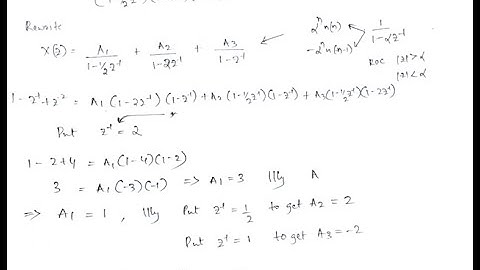 (1-½z⁻¹)(
Rewrite
X(z) = A₁/(1-½z⁻¹) + A₂/(1-2z⁻¹) + A₃/(1-z⁻¹)
αⁿu(n)
-αⁿu(n-1)
1/(1-αz⁻¹)
ROC |z|>α
|z|<α
1-z⁻¹+z⁻² = A₁(1-2z⁻¹)(1-z⁻¹)+A₂(1-½z⁻¹)(1-z⁻¹)+A₃(1-½z⁻¹)(1-2z⁻¹)
Put z⁻¹ = 2
1-2+4 = A₁(1-4)(1-2)
3 = A₁(-3)(-1) => A₁=3 llly A
=> A₁ = 1, llly Put z⁻¹ = 1/2 to get A₂ = 2
Put z⁻¹ = 1 to get A₃ = -2